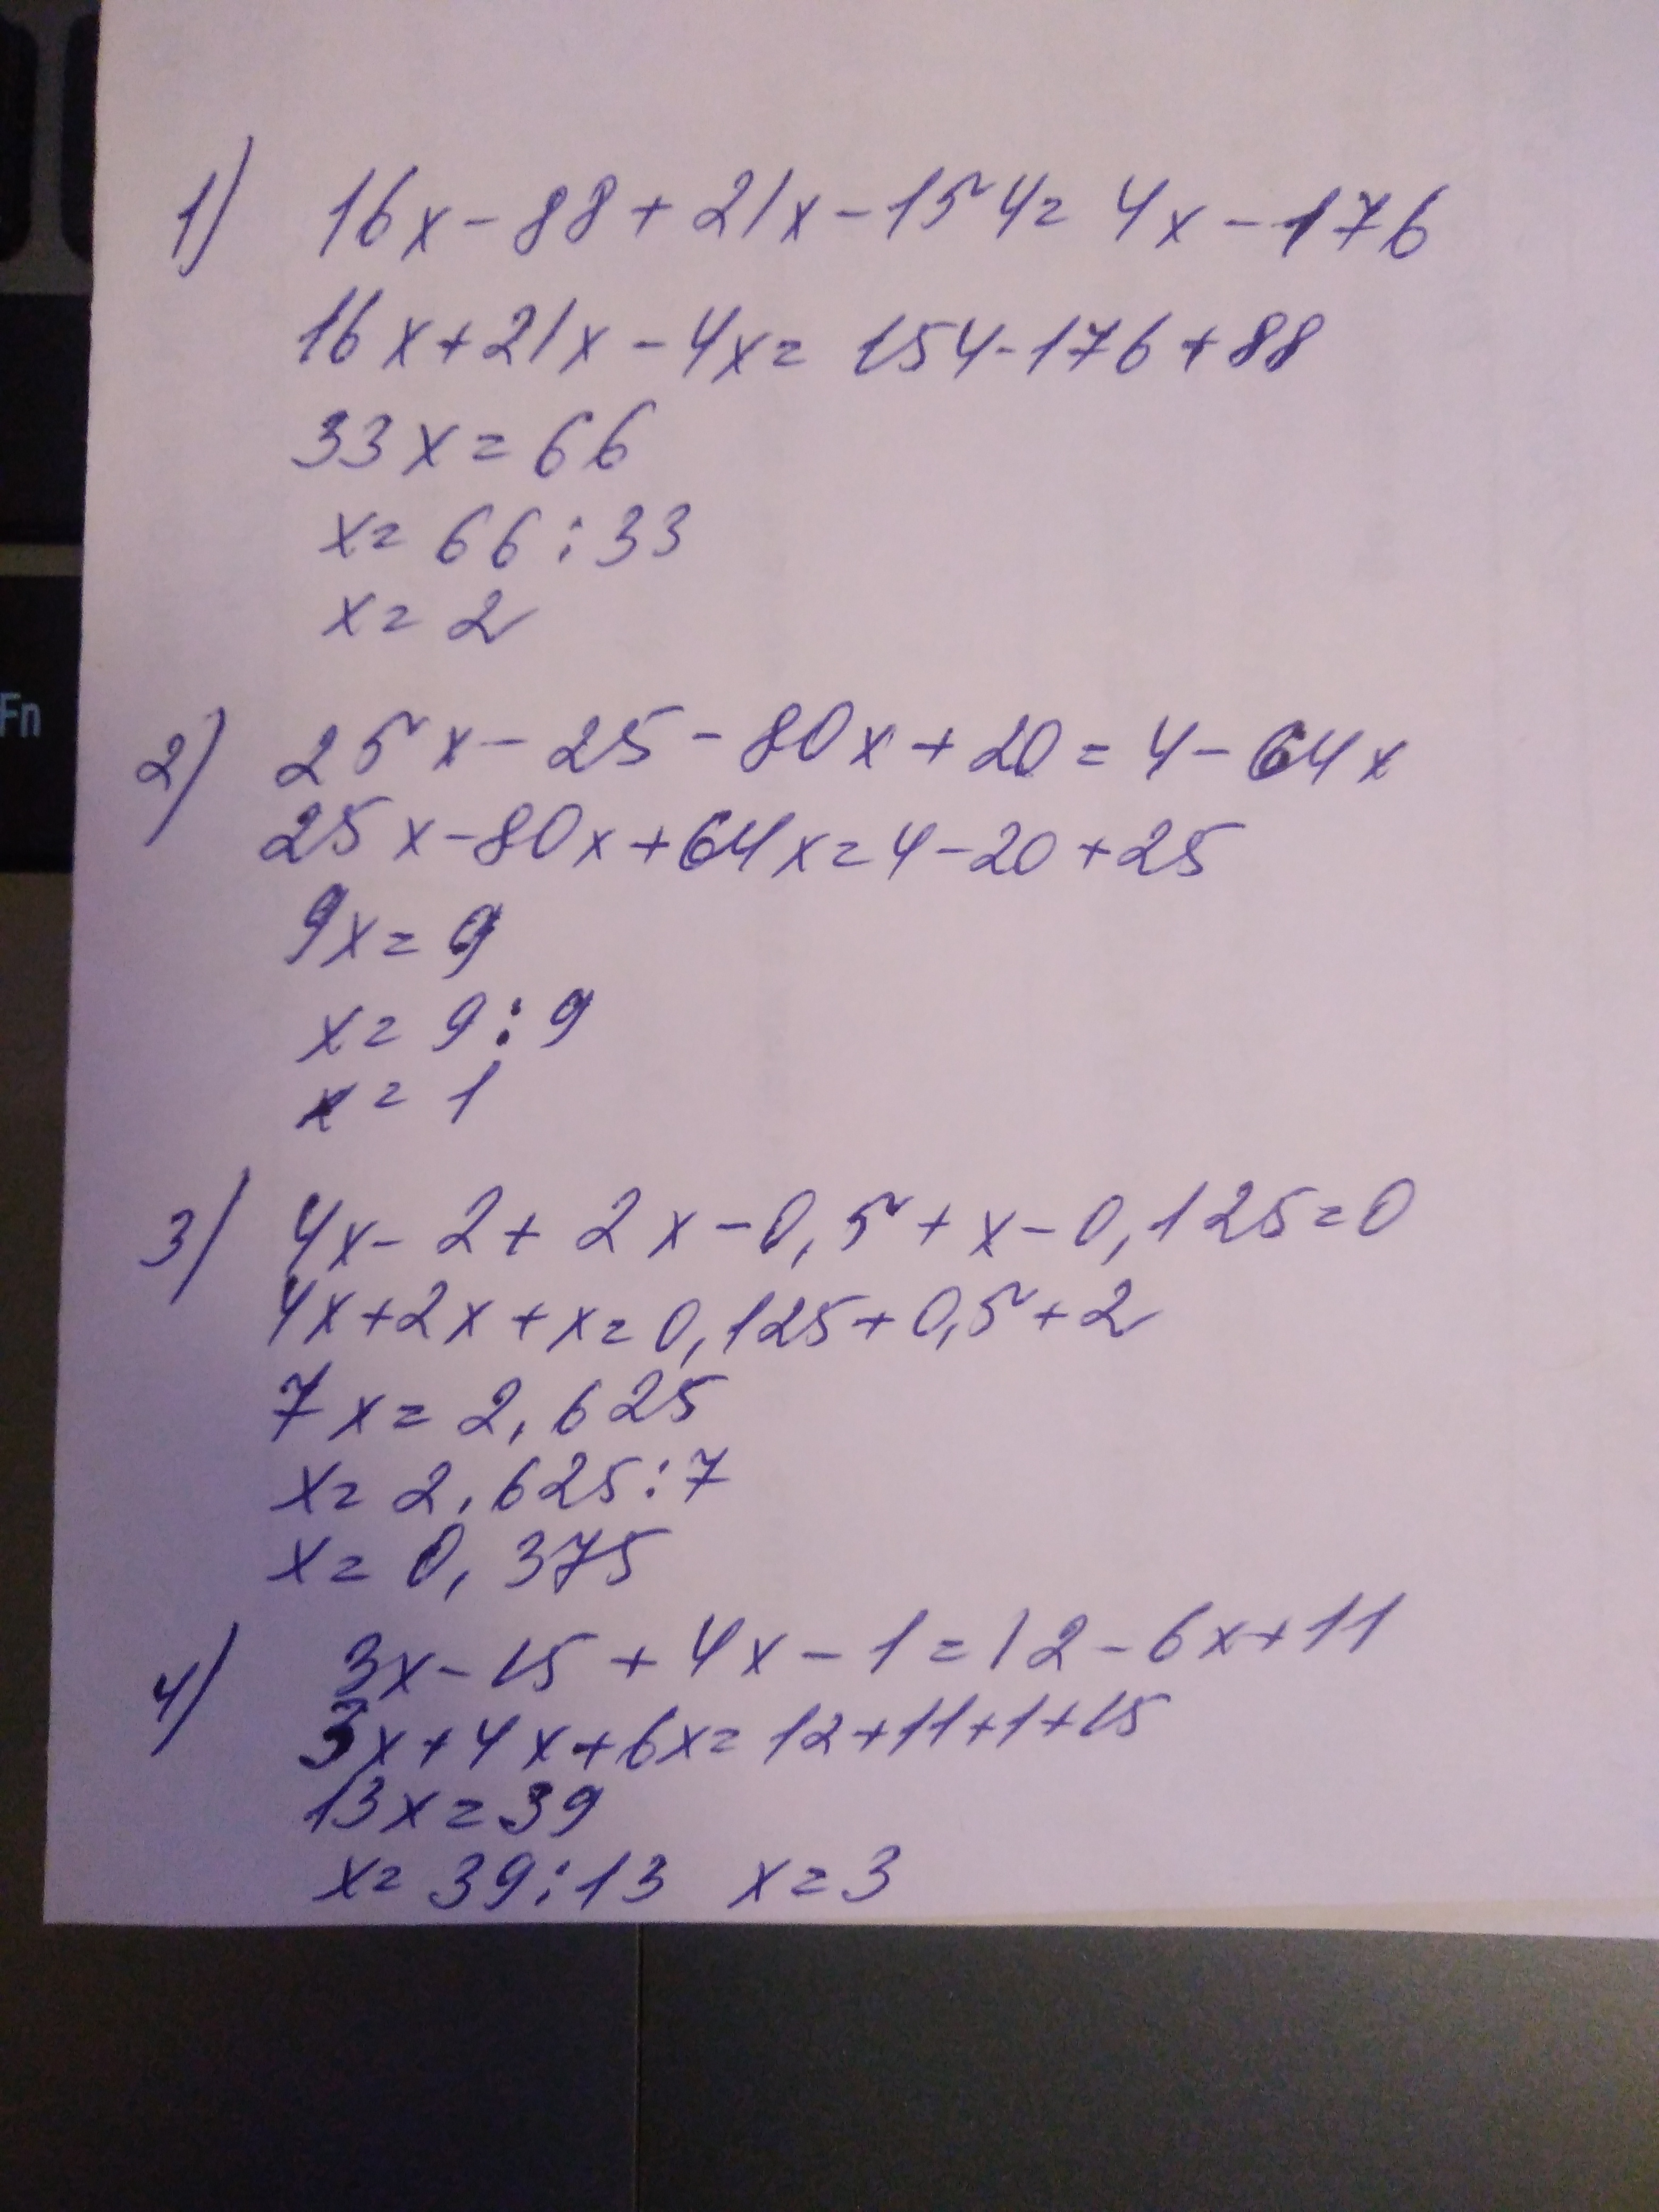 1) 16x - 88 + 21x - 154 = 4x - 176
16x + 21x - 4x = 154 - 176 + 88
33x = 66
x = 66 : 33
x = 2
2) 25x - 25 - 80x + 20 = 4 - 64x
25x - 80x + 64x = 4 - 20 + 25
9x = 9
x = 9 : 9
x = 1
3) 4x - 2 + 2x - 0,5 + x - 0,125 = 0
4x + 2x + x = 0,125 + 0,5 + 2
7x = 2,625
x = 2,625 : 7
x = 0,375
4) 3x - 15 + 4x - 1 = 12 - 6x + 11
3x + 4x + 6x = 12 + 11 + 1 + 15
13x = 39
x = 39 : 13 x = 3
Fn